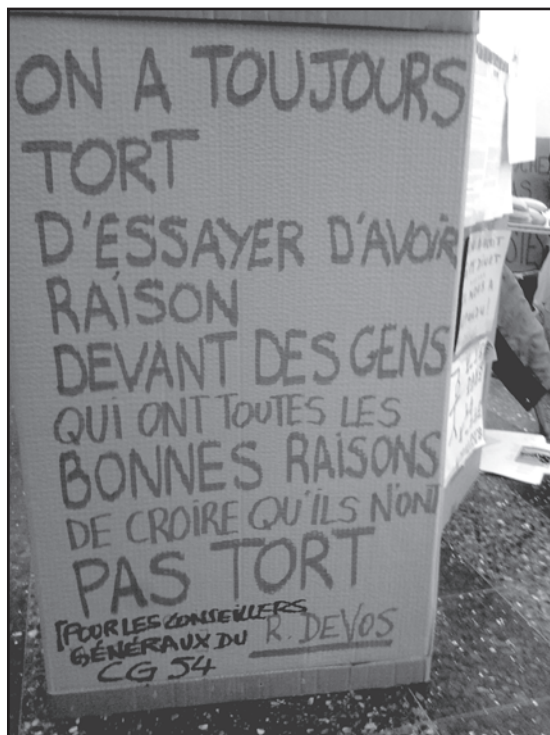 ON A TOUJOURS
TORT
D'ESSAYER D'AVOIR
RAISON
DEVANT DES GENS
QUI ONT TOUTES LES
BONNES RAISONS
DE CROIRE QU'ILS N'ONT
PAS TORT
R. DEVOS
[POUR LES CONSEILLERS
GÉNÉRAUX DU
CG 54